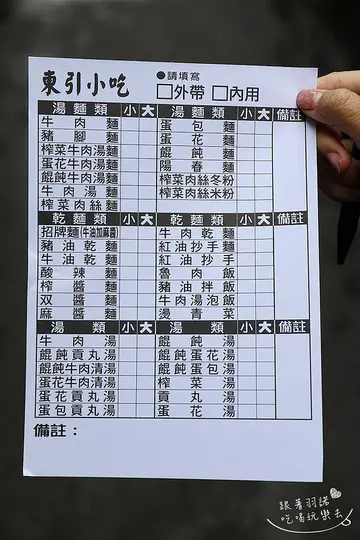 東引小吃
●請填寫
□外帶 □內用
湯麵類 小 大 湯麵類 小 大 備註
牛肉麵 蛋包麵
豬腳麵 蛋花麵
榨菜牛肉湯麵 餛飩麵
蛋花牛肉湯麵 陽春麵
餛飩牛肉湯麵 榨菜肉絲冬粉
牛肉湯麵 榨菜肉絲米粉
榨菜肉絲麵
乾麵類 小 大 乾麵類 小 大 備註
招牌麵(牛油加麻醬) 牛肉乾麵
豬油乾麵 紅油抄手麵
牛油乾麵 紅油抄手
酸辣麵 魯肉飯
榨醬麵 豬油拌飯
双醬麵 牛肉湯泡飯
麻醬麵 燙青菜
湯類 小 大 湯類 小 大 備註
牛肉湯 餛飩湯
餛飩貢丸湯 餛飩蛋花湯
餛飩牛肉清湯 餛飩蛋包湯
蛋花牛肉清湯 榨菜湯
蛋花貢丸湯 貢丸湯
蛋包貢丸湯 蛋花湯
備註：
跟著羽諾
吃喝玩樂去